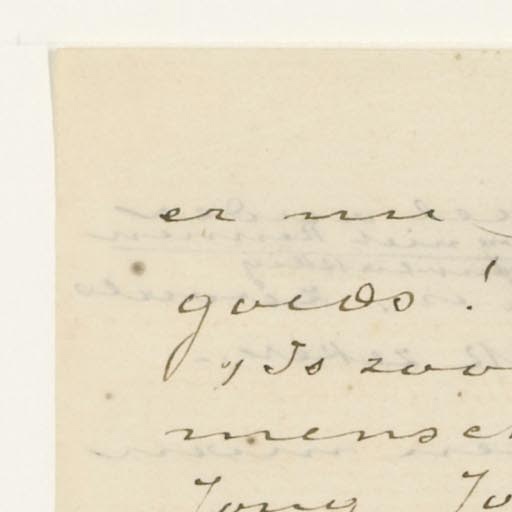 er nu
goeds!
, Is zoo
mensch
Jong Jo